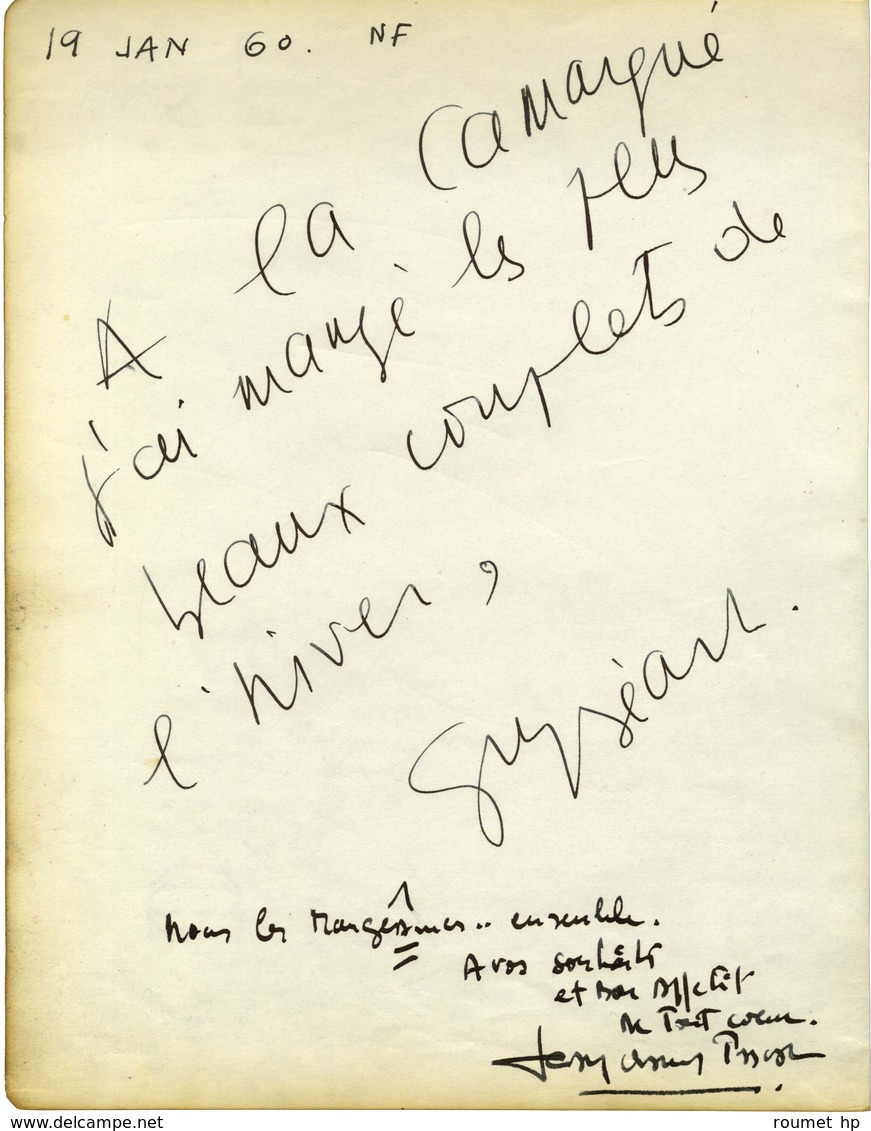 19 JAN 60. NF
A la Camargue
j'ai mangé les plus
beaux couplets de
l'hiver,
Guy Béart.
Nous les mangeâmes .. ensemble.
A vos souhaits
et bon appétit
de tout coeur.
www.delcampe.net
roumet hp